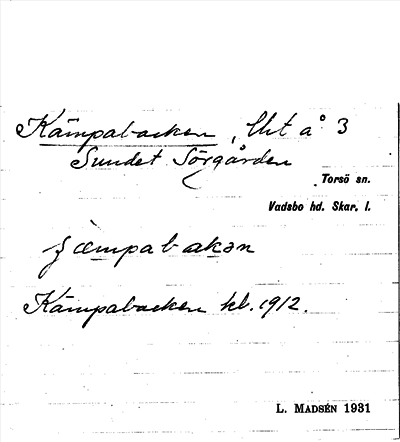 Kämpabacken, Uht å 3
Sundet Sörgården
Torsö sn.
Vadsbo hd. Skar. l.
ʃæmpabakən
Kämpabacken kl. 1912.
L. MADSÉN 1931